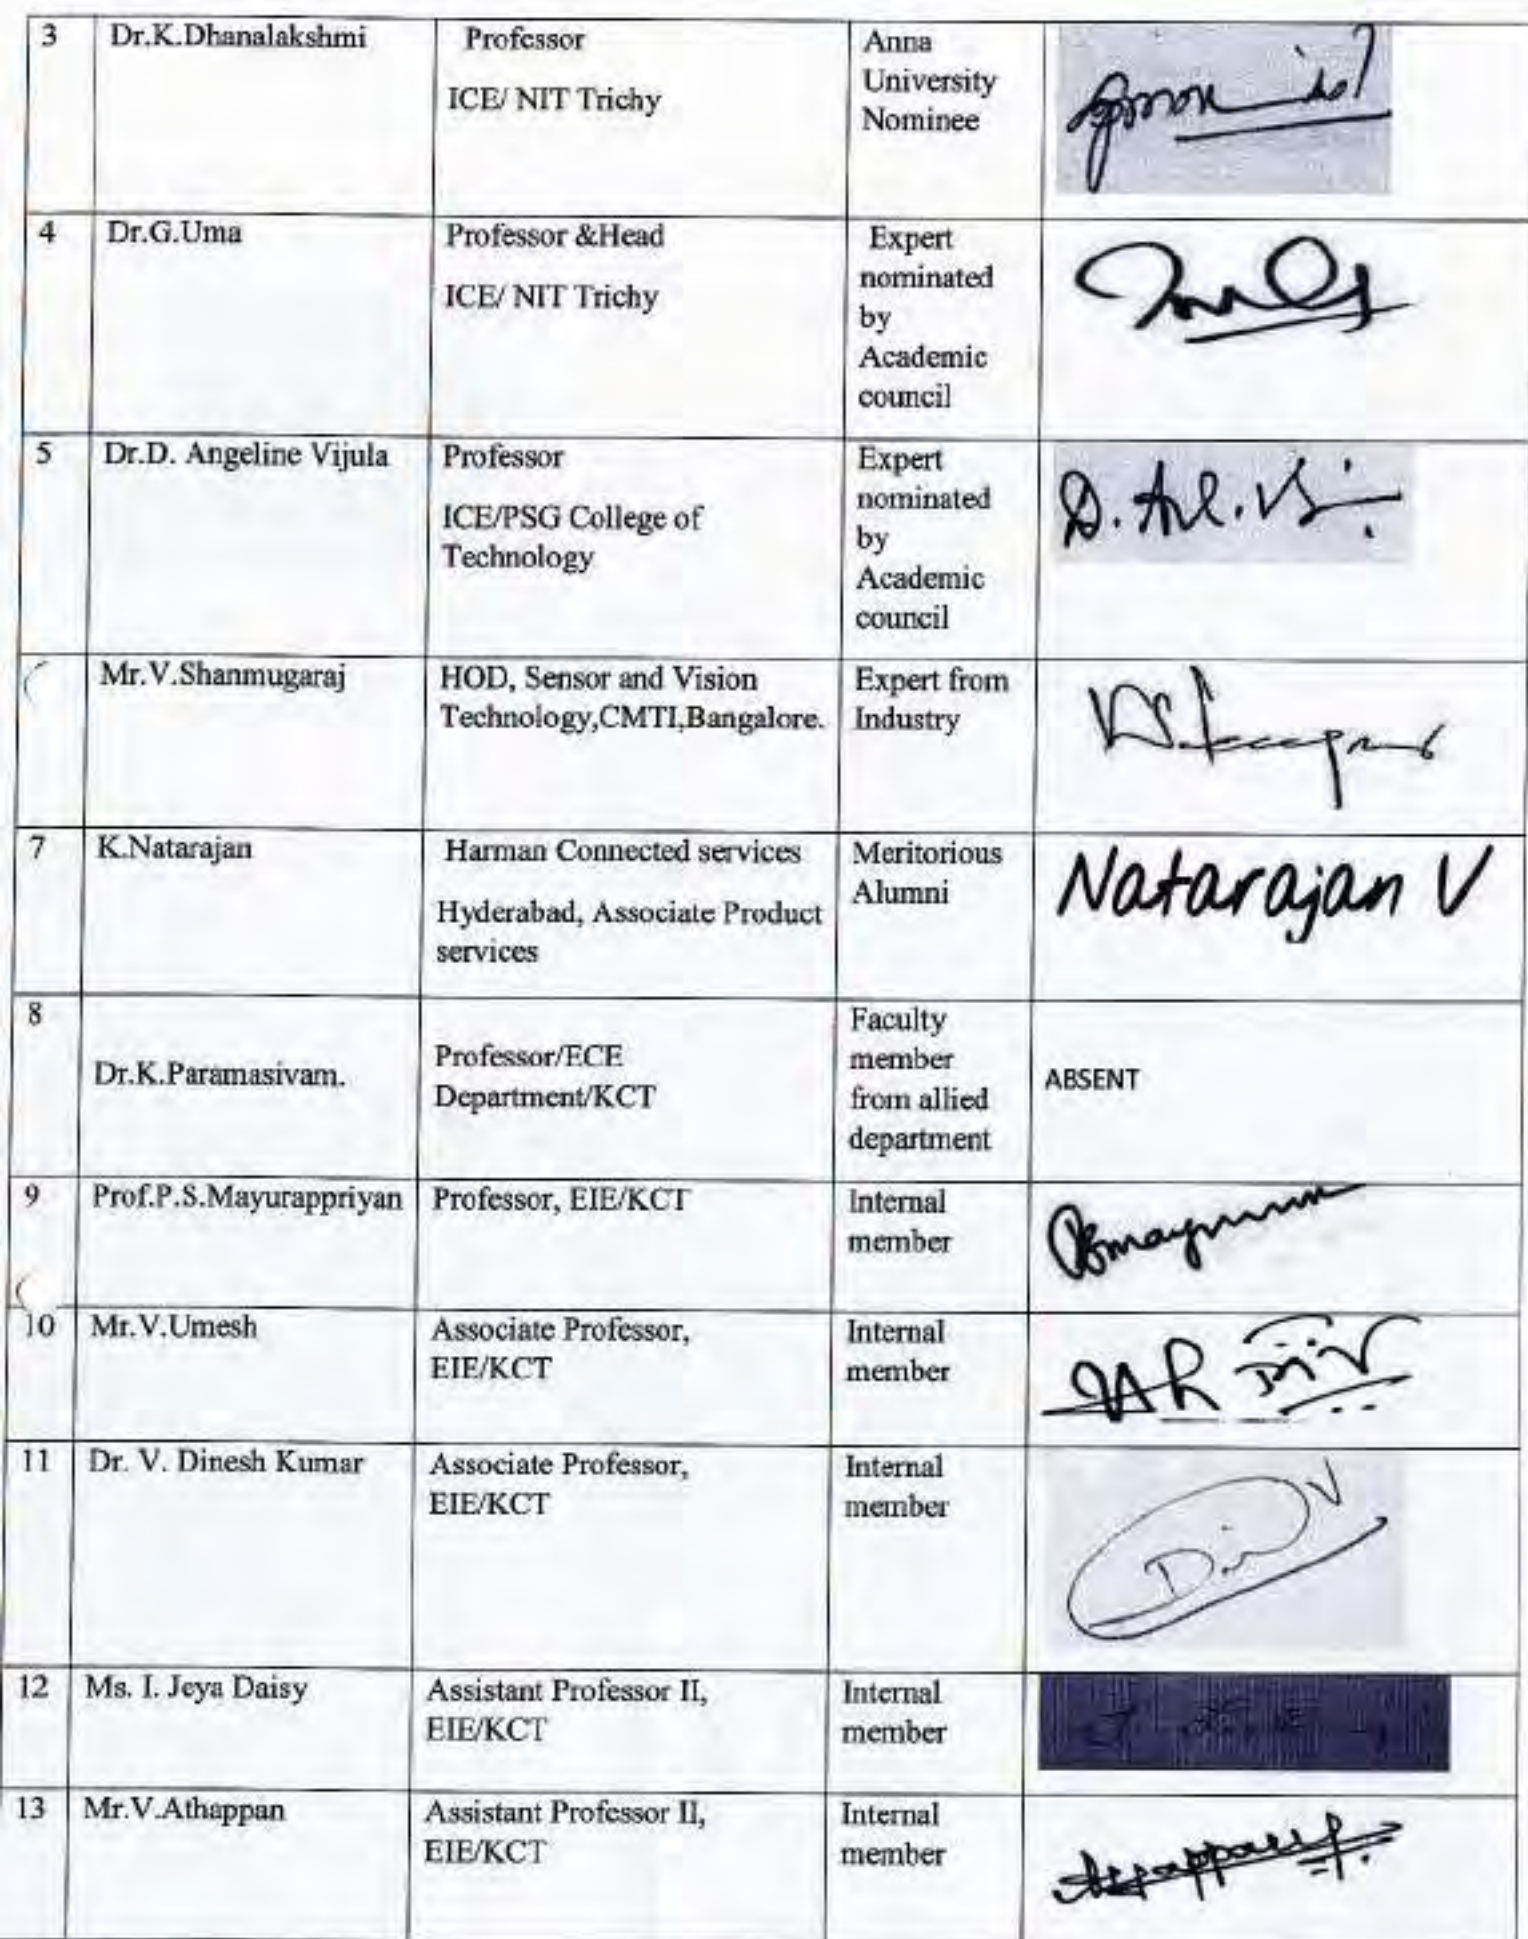 3
Dr.K.Dhanalakshmi
Professor
ICE/ NIT Trichy
Anna
University
Nominee
4
Dr.G.Uma
Professor &Head
ICE/ NIT Trichy
Expert
nominated
by
Academic
council
5
Dr.D. Angeline Vijula
Professor
ICE/PSG College of
Technology
Expert
nominated
by
Academic
council
Mr.V.Shanmugaraj
HOD, Sensor and Vision
Technology,CMTI,Bangalore.
Expert from
Industry
7
K.Natarajan
Harman Connected services
Hyderabad, Associate Product
services
Meritorious
Alumni
Natarajan V
8
Dr.K.Paramasivam.
Professor/ECE
Department/KCT
Faculty
member
from allied
department
ABSENT
9
Prof.P.S.Mayurappriyan
Professor, EIE/KCT
Internal
member
10
Mr.V.Umesh
Associate Professor,
EIE/KCT
Internal
member
11
Dr. V. Dinesh Kumar
Associate Professor,
EIE/KCT
Internal
member
12
Ms. I. Jeya Daisy
Assistant Professor II,
EIE/KCT
Internal
member
13
Mr.V.Athappan
Assistant Professor II,
EIE/KCT
Internal
member